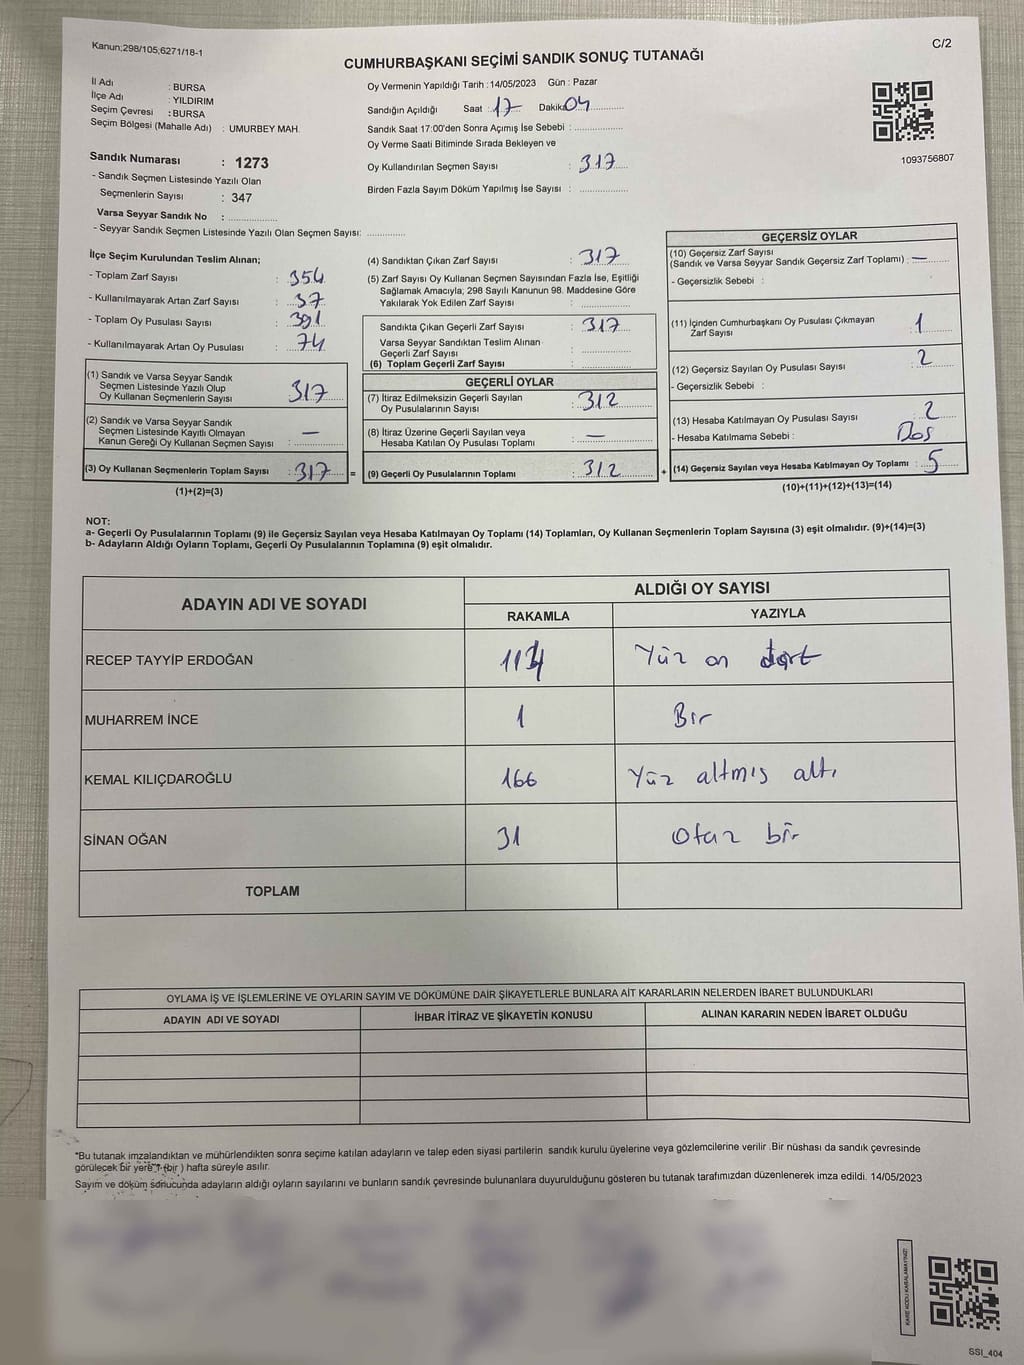 Kanun;298/105;6271/18-1
C/2
CUMHURBAŞKANI SEÇİMİ SANDIK SONUÇ TUTANAĞI
İl Adı : BURSA
İlçe Adı : YILDIRIM
Seçim Çevresi : BURSA
Seçim Bölgesi (Mahalle Adı) : UMURBEY MAH.
Sandık Numarası : 1273
- Sandık Seçmen Listesinde Yazılı Olan
Seçmenlerin Sayısı : 347
Varsa Seyyar Sandık No : ..................
- Seyyar Sandık Seçmen Listesinde Yazılı Olan Seçmen Sayısı: ..............
Oy Vermenin Yapıldığı Tarih : 14/05/2023 Gün : Pazar
Sandığın Açıldığı Saat : 17 Dakika 04
Sandık Saat 17:00'den Sonra Açımış İse Sebebi : ..................
Oy Verme Saati Bitiminde Sırada Bekleyen ve
Oy Kullandırılan Seçmen Sayısı : 317
Birden Fazla Sayım Döküm Yapılmış İse Sayısı : ..................
1093756807
İlçe Seçim Kurulundan Teslim Alınan;
- Toplam Zarf Sayısı : 354
- Kullanılmayarak Artan Zarf Sayısı : 37
- Toplam Oy Pusulası Sayısı : 391
- Kullanılmayarak Artan Oy Pusulası : 74
(1) Sandık ve Varsa Seyyar Sandık
Seçmen Listesinde Yazılı Olup
Oy Kullanan Seçmenlerin Sayısı : 317
(2) Sandık ve Varsa Seyyar Sandık
Seçmen Listesinde Kayıtlı Olmayan
Kanun Gereği Oy Kullanan Seçmen Sayısı : —
(3) Oy Kullanan Seçmenlerin Toplam Sayısı : 317 =
(1)+(2)=(3)
(4) Sandıktan Çıkan Zarf Sayısı : 317
(5) Zarf Sayısı Oy Kullanan Seçmen Sayısından Fazla İse, Eşitliği
Sağlamak Amacıyla; 298 Sayılı Kanunun 98. Maddesine Göre
Yakılarak Yok Edilen Zarf Sayısı : ..................
Sandıkta Çıkan Geçerli Zarf Sayısı : 317
Varsa Seyyar Sandıktan Teslim Alınan
Geçerli Zarf Sayısı : ..................
(6) Toplam Geçerli Zarf Sayısı : ..................
GEÇERLİ OYLAR
(7) İtiraz Edilmeksizin Geçerli Sayılan
Oy Pusulalarının Sayısı : 312
(8) İtiraz Üzerine Geçerli Sayılan veya
Hesaba Katılan Oy Pusulası Toplamı : —
(9) Geçerli Oy Pusulalarının Toplamı : 312 +
GEÇERSİZ OYLAR
(10) Geçersiz Zarf Sayısı
(Sandık ve Varsa Seyyar Sandık Geçersiz Zarf Toplamı) : —
- Geçersizlik Sebebi :
(11) İçinden Cumhurbaşkanı Oy Pusulası Çıkmayan
Zarf Sayısı : 1
(12) Geçersiz Sayılan Oy Pusulası Sayısı : 2
- Geçersizlik Sebebi :
(13) Hesaba Katılmayan Oy Pusulası Sayısı : 2
- Hesaba Katılmama Sebebi :
(14) Geçersiz Sayılan veya Hesaba Katılmayan Oy Toplamı : 5
(10)+(11)+(12)+(13)=(14)
NOT:
a- Geçerli Oy Pusulalarının Toplamı (9) ile Geçersiz Sayılan veya Hesaba Katılmayan Oy Toplamı (14) Toplamları, Oy Kullanan Seçmenlerin Toplam Sayısına (3) eşit olmalıdır. (9)+(14)=(3)
b- Adayların Aldığı Oyların Toplamı, Geçerli Oy Pusulalarının Toplamına (9) eşit olmalıdır.
ADAYIN ADI VE SOYADI ALDIĞI OY SAYISI
RAKAMLA YAZIYLA
RECEP TAYYİP ERDOĞAN 114 Yüz on dört
MUHARREM İNCE 1 Bir
KEMAL KILIÇDAROĞLU 166 Yüz altmış altı
SİNAN OĞAN 31 Otuz bir
TOPLAM
OYLAMA İŞ VE İŞLEMLERİNE VE OYLARIN SAYIM VE DÖKÜMÜNE DAİR ŞİKAYETLERLE BUNLARA AİT KARARLARIN NELERDEN İBARET BULUNDUKLARI
ADAYIN ADI VE SOYADI İHBAR İTİRAZ VE ŞİKAYETİN KONUSU ALINAN KARARIN NEDEN İBARET OLDUĞU
*Bu tutanak imzalandıktan ve mühürlendikten sonra seçime katılan adayların ve talep eden siyasi partilerin sandık kurulu üyelerine veya gözlemcilerine verilir .Bir nüshası da sandık çevresinde
görülecek bir yere 1 (bir ) hafta süreyle asılır.
Sayım ve döküm sonucunda adayların aldığı oyların sayılarını ve bunların sandık çevresinde bulunanlara duyurulduğunu gösteren bu tutanak tarafımızdan düzenlenerek imza edildi. 14/05/2023
KARE KODU KARALAMAYINIZ!
SSI_404